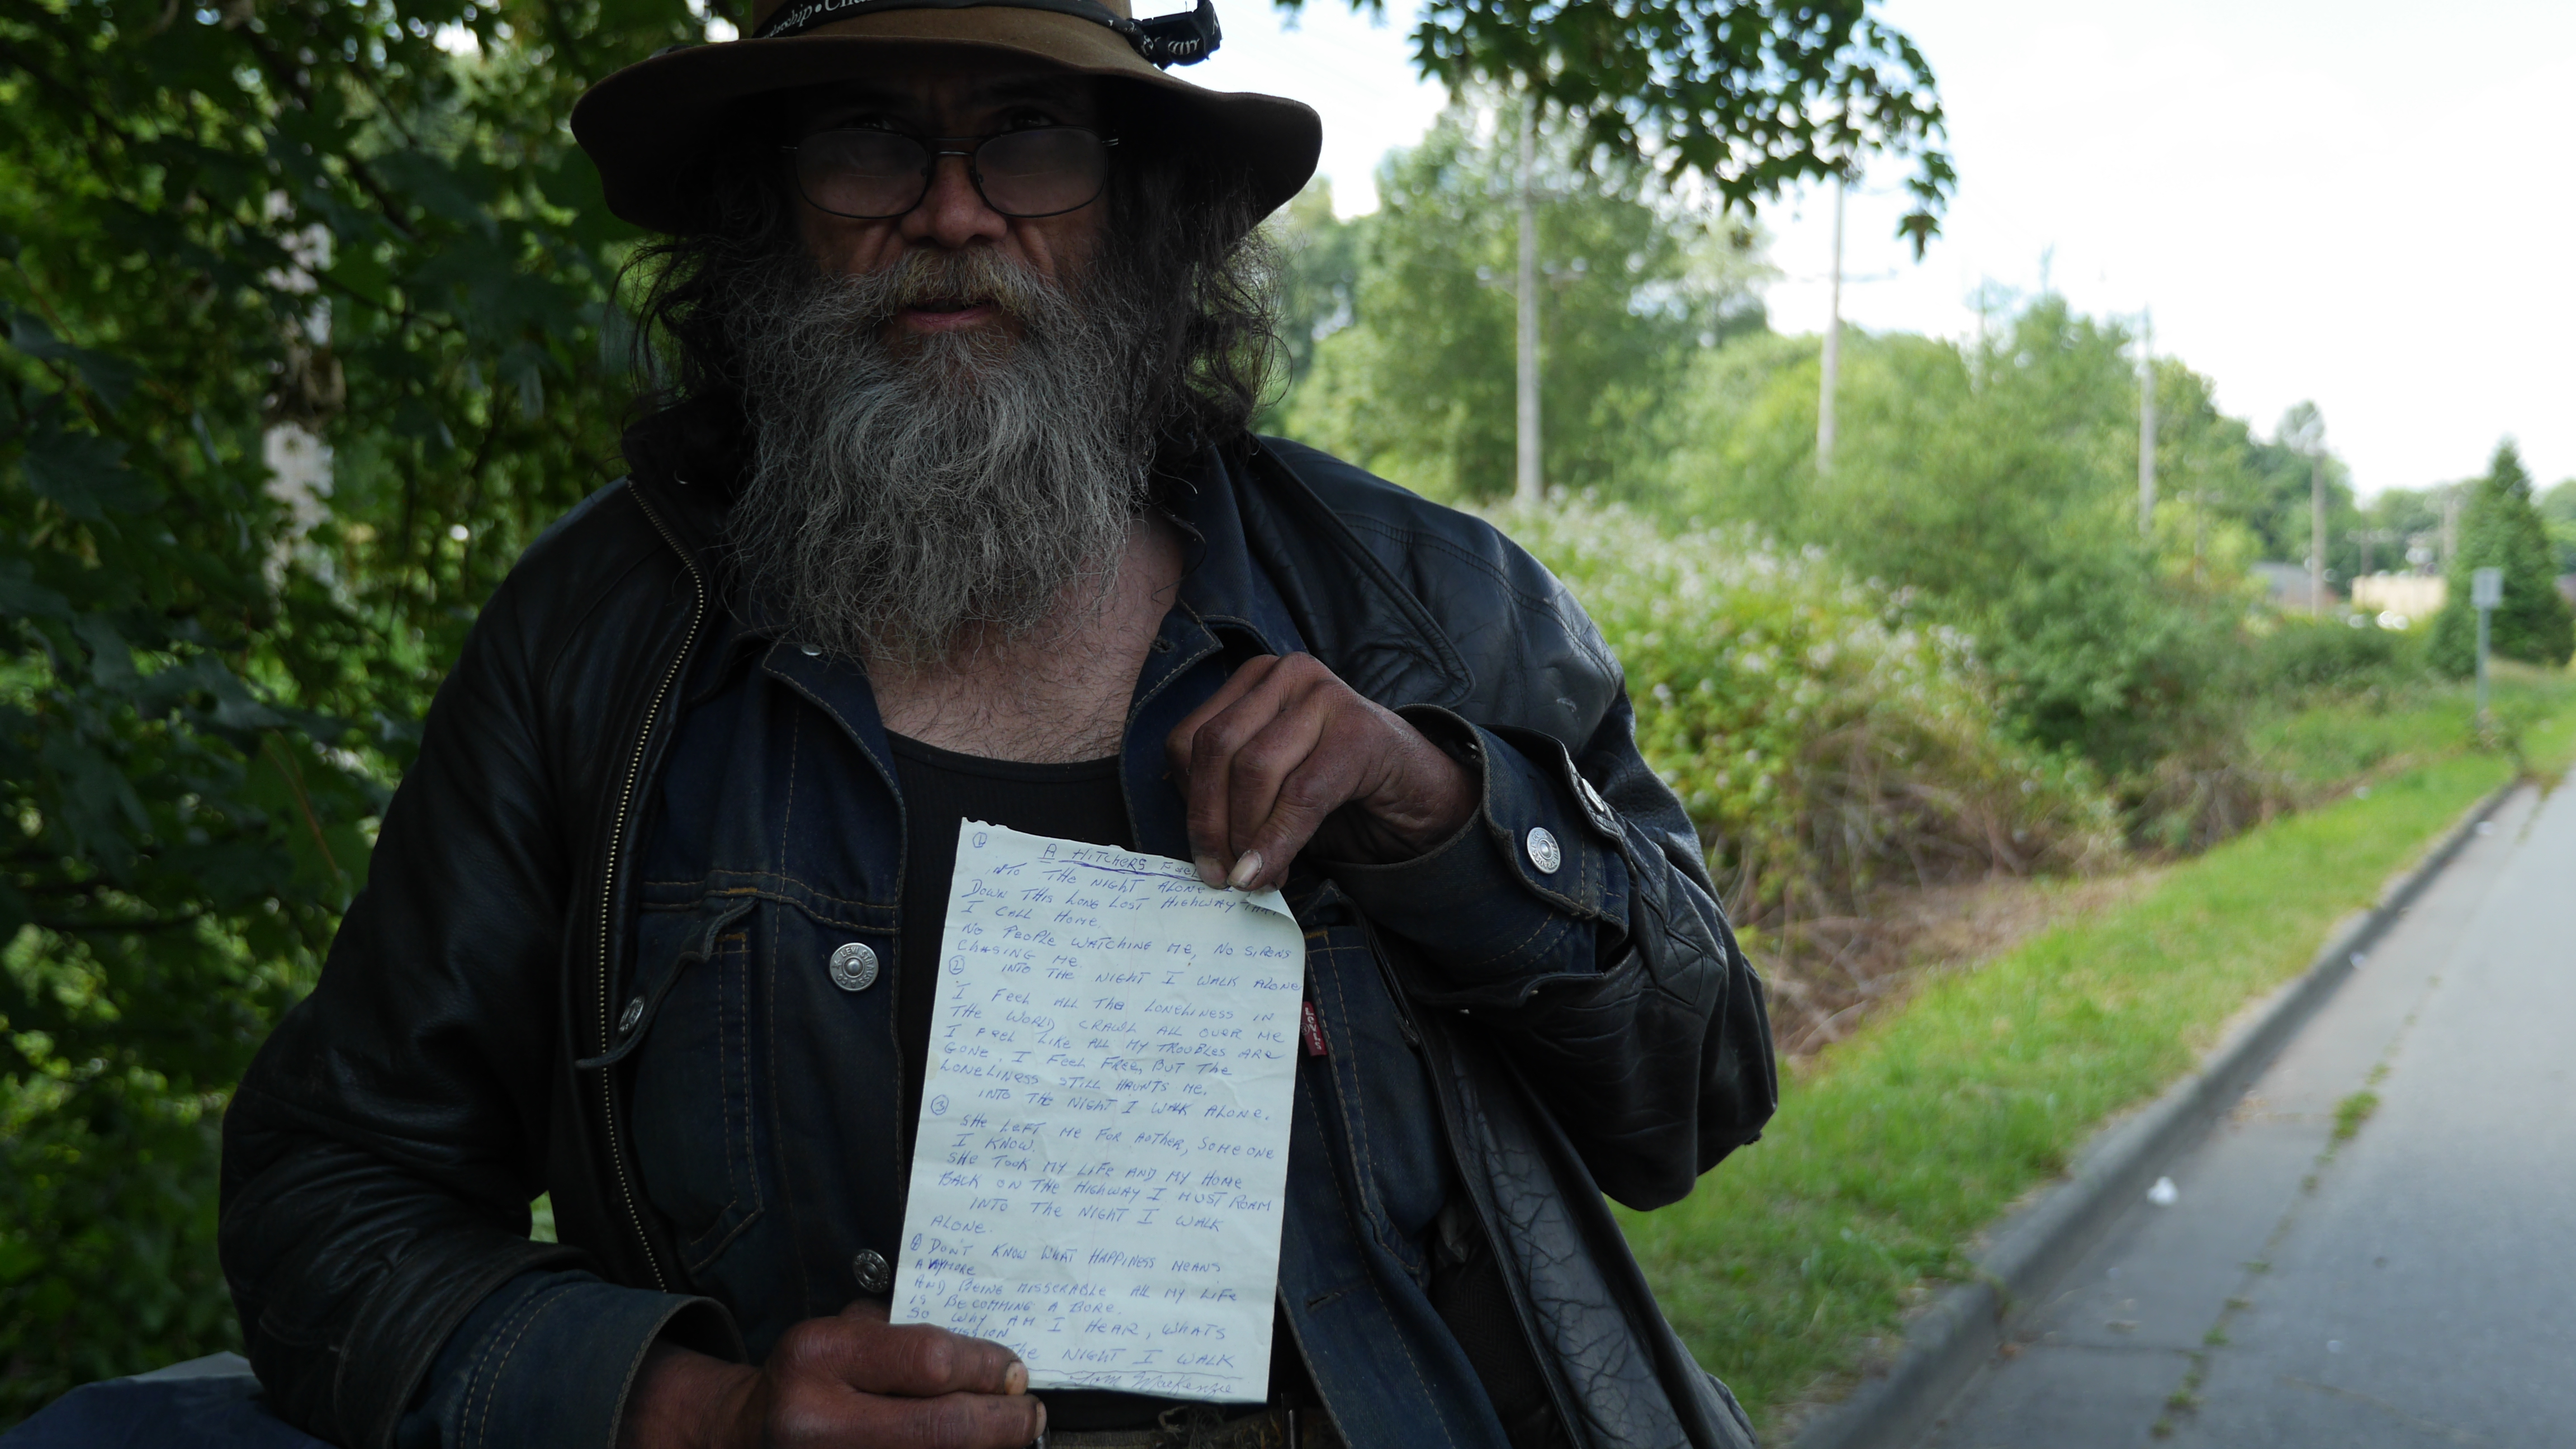 ①
A HITCHERS
INTO THE NIGHT ALONE
DOWN THIS LONG LOST HIGHWAY THAT
I CALL HOME.
NO PEOPLE WATCHING ME, NO SIRENS
CHASING ME.
② INTO THE NIGHT I WALK ALONE
I FEEL ALL THE LONELINESS IN
THE WORLD CRAWL ALL OVER ME
I FEEL LIKE ALL MY TROUBLES ARE
GONE. I FEEL FREE, BUT THE
LONELINESS STILL HAUNTS ME.
INTO THE NIGHT I WALK ALONE.
③
SHE LEFT ME FOR AOTHER, SOMEONE
I KNOW.
SHE TOOK MY LIFE AND MY HOME
BACK ON THE HIGHWAY I MUST ROAM
INTO THE NIGHT I WALK
ALONE.
④ DON'T KNOW WHAT HAPPINESS MEANS
ANYMORE
AND BEING MISSERABLE ALL MY LIFE
IS BECOMMING A BORE.
SO WHY AM I HEAR, WHATS
THE NIGHT I WALK
Tom MacKenzie
LEVI'S